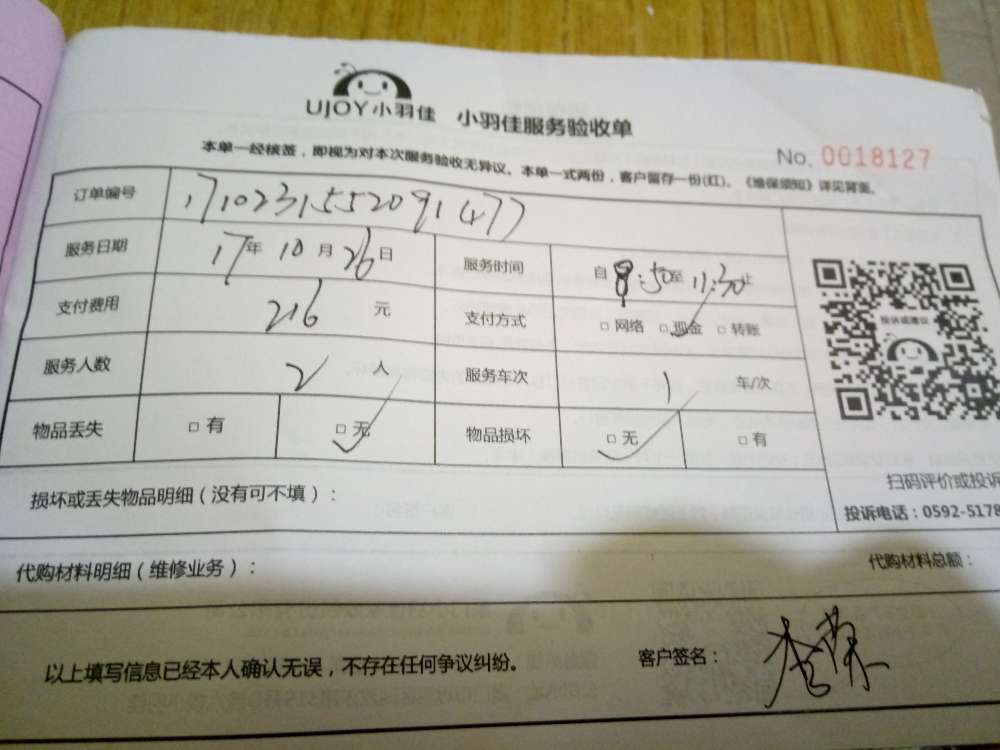 UJOY小羽佳 小羽佳服务验收单
No. 0018127
本单一经核签，即视为对本次服务验收无异议。本单一式两份，客户留存一份(红)。《维保须知》详见背面。
订单编号 1710231552091477
服务日期 17年 10月 26日 服务时间 自 8:50至 11:30止
支付费用 216 元 支付方式 □网络 □现金 □转账
投诉或建议
服务人数 2 人 服务车次 1 车/次
物品丢失 □有 □无 物品损坏 □无 □有
扫码评价或投诉
损坏或丢失物品明细（没有可不填）：
投诉电话：0592-5178
代购材料明细（维修业务）： 代购材料总额：
以上填写信息已经本人确认无误，不存在任何争议纠纷。 客户签名：